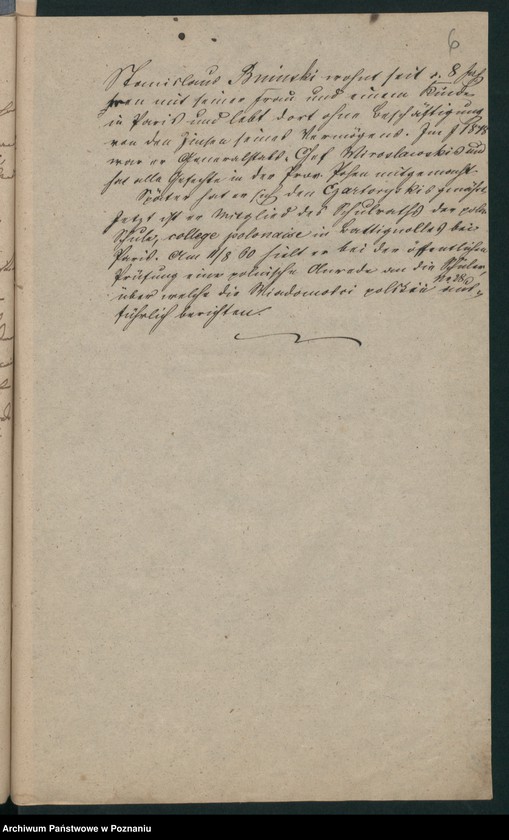 6
Stanislaus Bninski wohnt seit c. 8 Jah-
ren mit seiner Frau und einem Kinde
in Paris und lebt dort ohne Beschäftigung
von den Zinsen seines Vermögens. Im J. 1848
war er Generalstabs-Chef Miroslawskis und
hat alle Gefechte in der Prov. Posen mitgemacht.
Später hat er sich den Czartoryskis genähert.
Jetzt ist er Mitglied des Schulraths der poln.
Schule, college polonaise in Battignolles bei
Paris. Am 11/8 60 hielt er bei der öffentlichen
Prüfung eine polnische Anrede an die Schüler,
über welche die Wiadomości polskie aus-
führlich berichten.
Archiwum Państwowe w Poznaniu